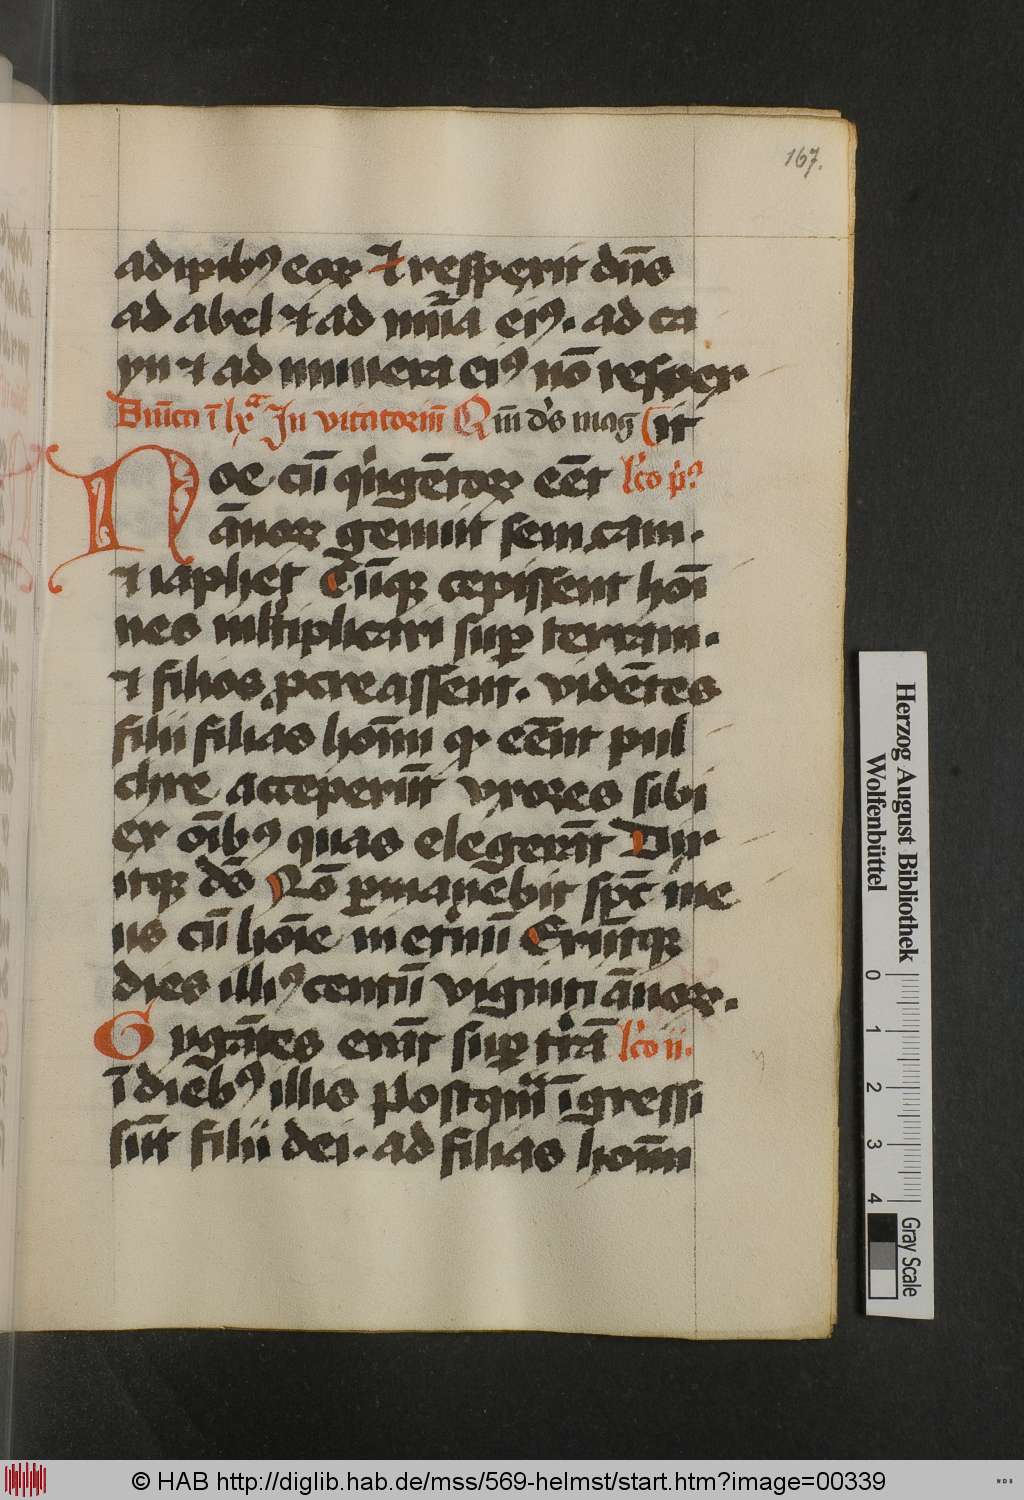 167.
adipibꝰ eoꝝ Et resperit dn̄s
ad abel et ad mūa eiꝰ. ad ca
yn et ad munera eiꝰ nō resper
Dn̄ica ī lxa In vitatoriū Qm̄ ds mag it
Noe cū qͥngētoꝝ eēt lc̄o pͥꝰ
ānoꝝ genuit sem cam.
et iaphet Cūqꝫ cepissent hoī
nes ml̄tiplicari suꝑ terram.
et filios ꝓcreassent. vidētes
filii filias hoīm ꝙ eēnt pul
chre acceperūt vxores sibi
ex oībꝰ quas elegerāt Dix
itqꝫ ds̄ Nō ꝑmanebit spc̄ me
us cū hoīe in etnū Erūtqꝫ
dies illiꝰ centū viginti ānoꝝ.
Gygātes erāt suꝑ tr̄ā lc̄o ii.
ī diebꝰ illis Postqm̄ īgressi
sūt filii dei. ad filias hoīm
Herzog August Bibliothek
Wolfenbüttel
0 1 2 3 4
Gray Scale
© HAB http://diglib.hab.de/mss/569-helmst/start.htm?image=00339